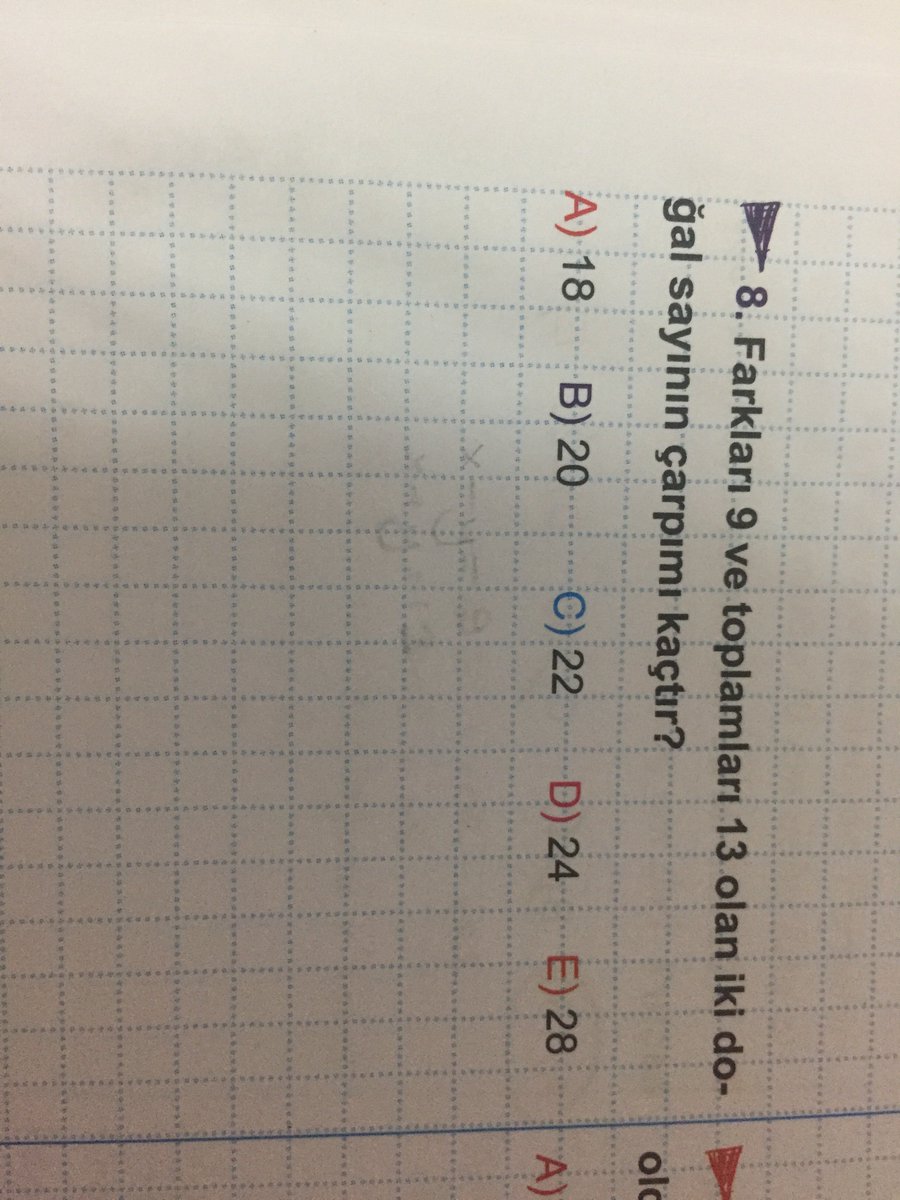 8. Farkları 9 ve toplamları 13 olan iki do-
ğal sayının çarpımı kaçtır?
A) 18 B) 20 C) 22 D) 24 E) 28
A)